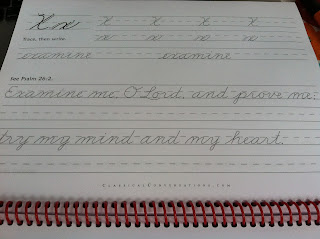 X x X X X X
Trace, then write. x x x x
examine examine
See Psalm 26:2.
Examine me, O Lord, and prove me;
try my mind and my heart.
ClassicalConversations.com